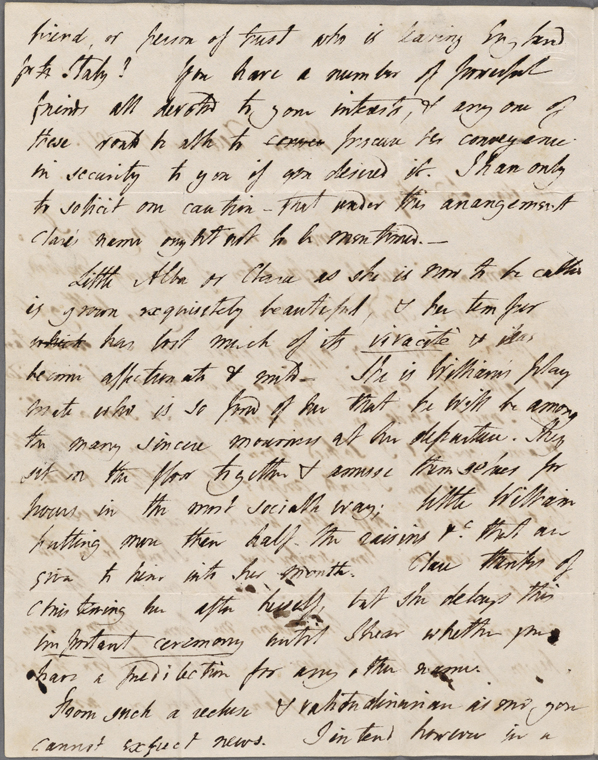 friend, or person of trust who is leaving England
for Italy? You have a number of powerful
friends all devoted to your interests, & any one of
these would be able to convey procure her conveyance
in security to you if you desired it. I have only
to solicit one caution – that under this arrangement
Clare's name ought not to be mentioned.—
Little Alba or Clara as she is now to be called
is grown exquisitely beautiful, & her temper
which has lost much of its vivacité & has
become affectionate & mild – She is William's play
mate who is so fond of her that he will be among
the many sincere mourners at her departure. They
sit on the floor together & amuse themselves for
hours in the most sociable way; little William
putting more then half the raisins &c that are
given to him into her mouth. Clare thinks of
christening her after herself, but she delays this
important ceremony until I hear whether you
have a predilection for any other name.
From such a recluse & valetudinarian as me, you
cannot expect news. I intend however in a